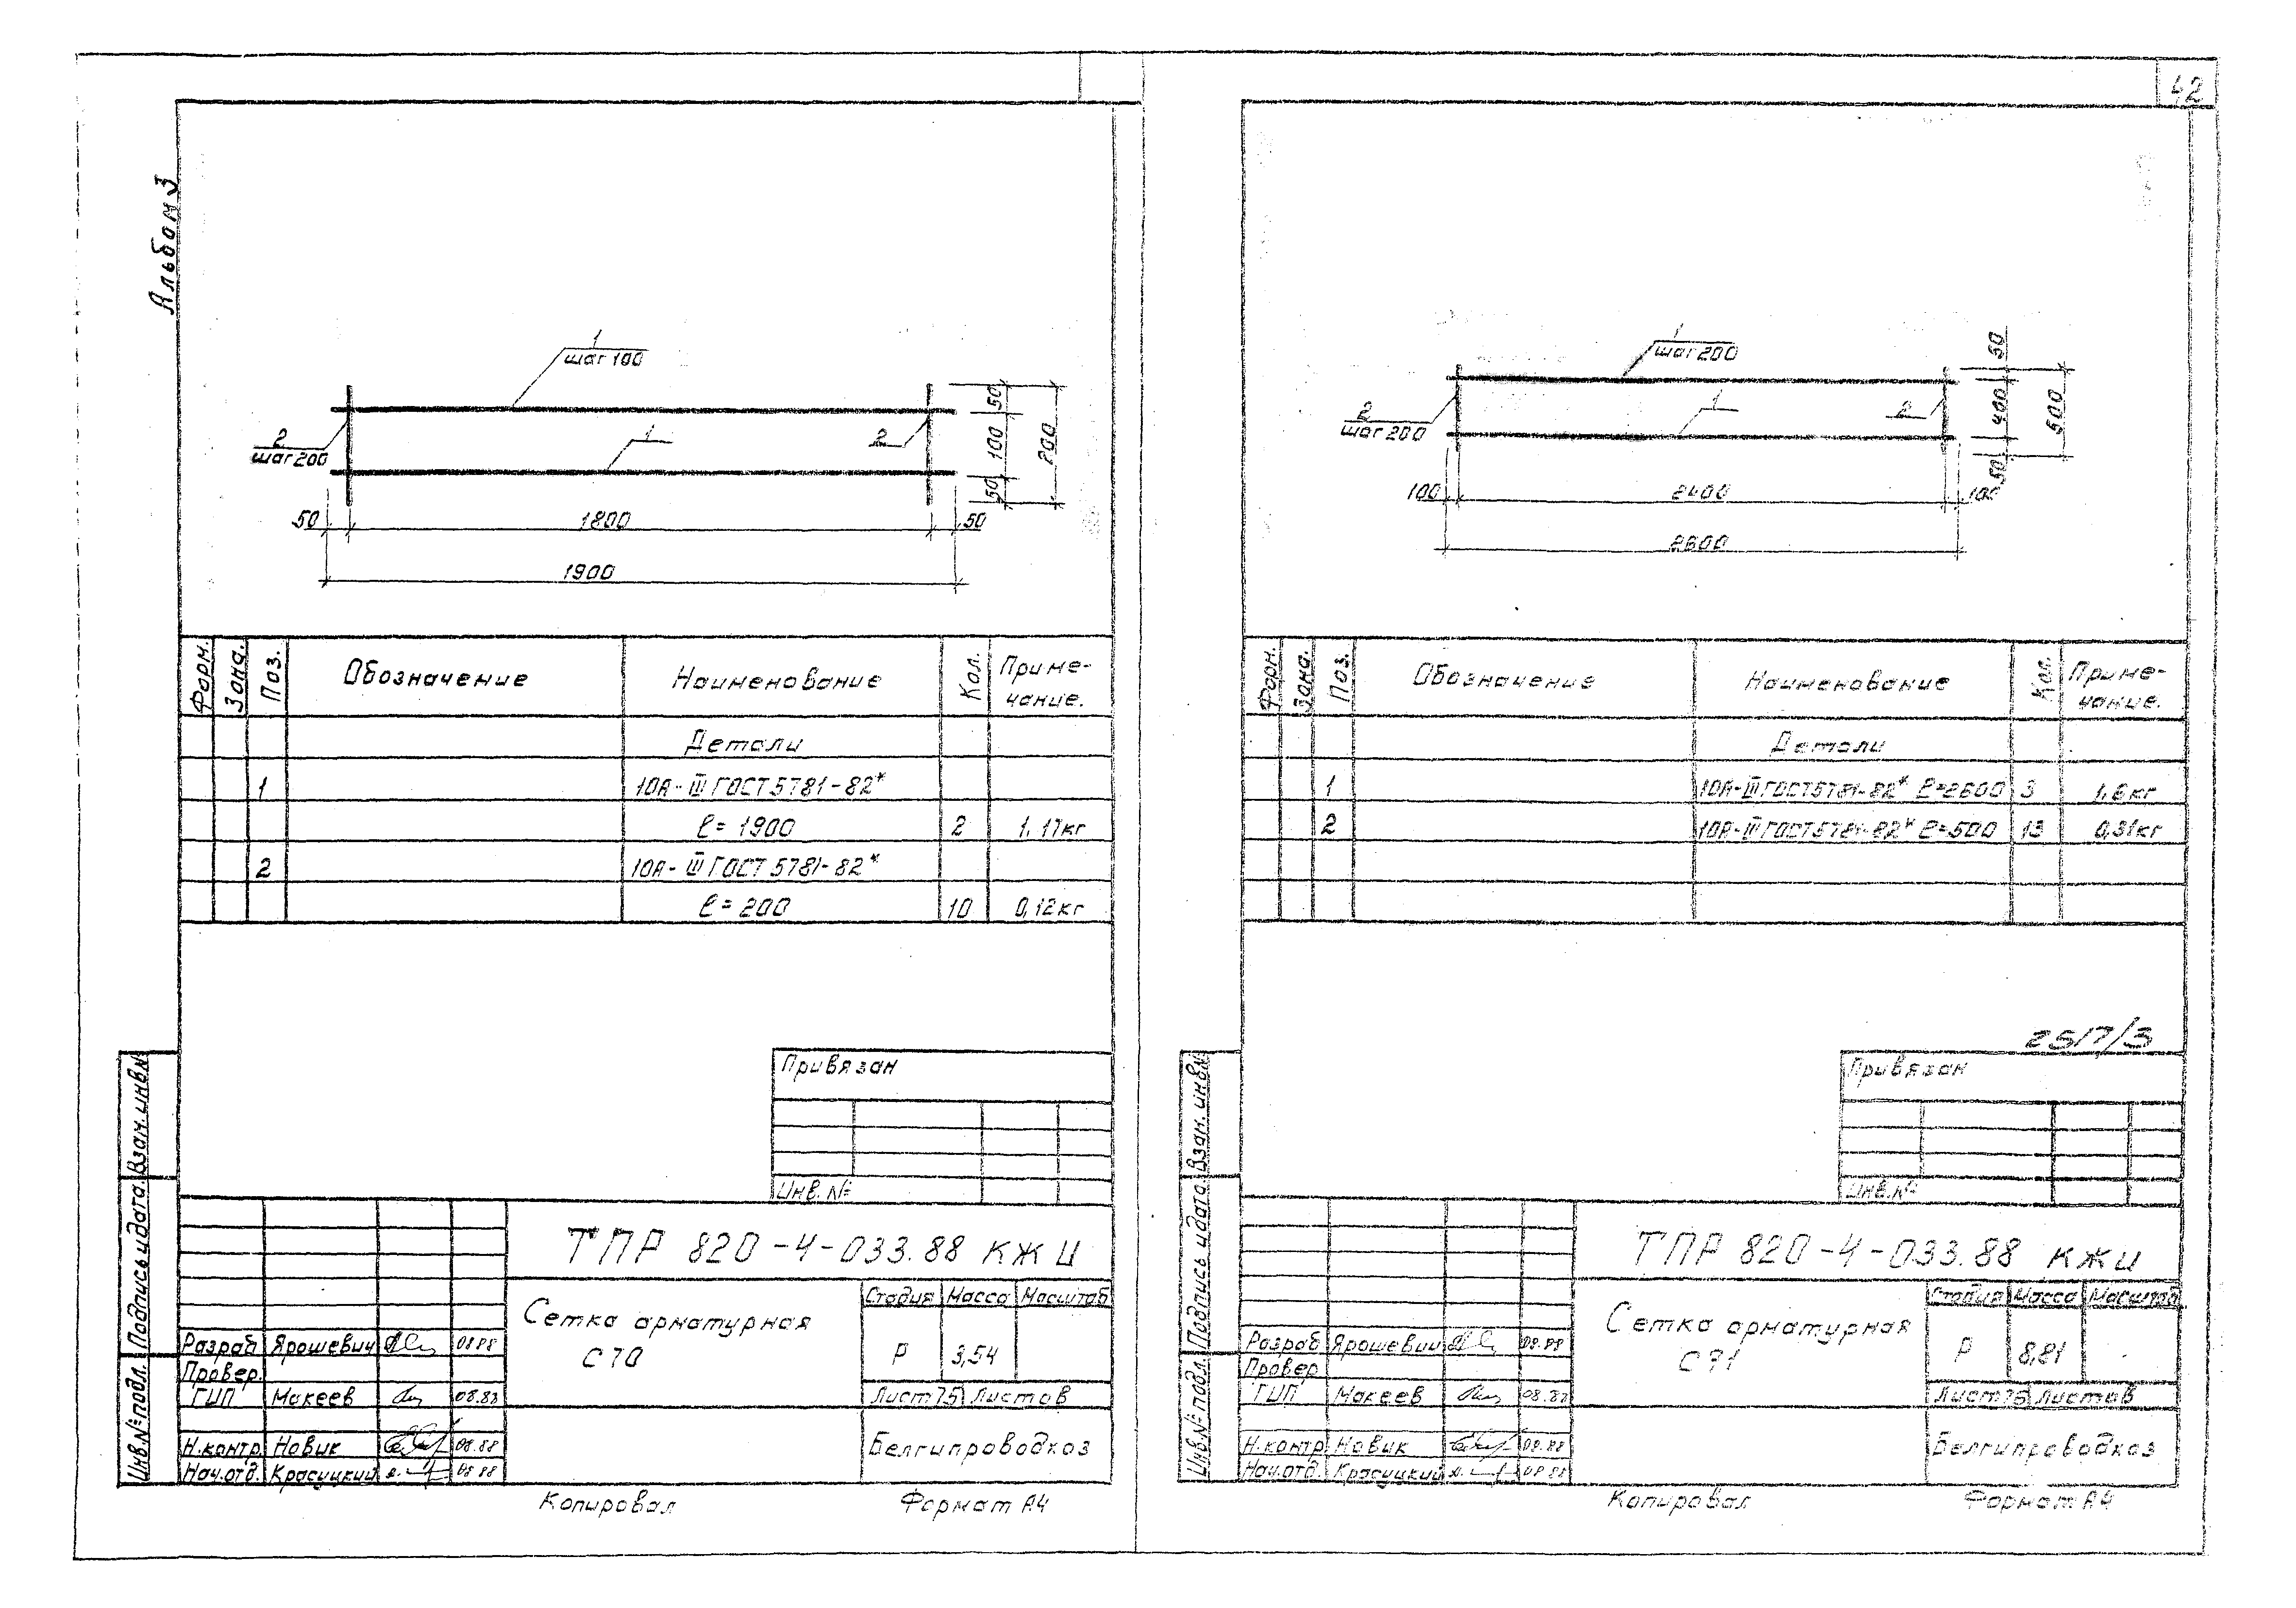 42
Альбом 3
1
шаг 100
2
шаг 200
1
2
50
100
50
200
50
1800
50
1900
Форм.
Зона.
Поз.
Обозначение
Наименование
Кол.
Приме-
чание.
Детали
1
10А-III ГОСТ 5781-82*
ℓ= 1900 2 1,17кг
2
10А-III ГОСТ 5781-82*
ℓ= 200 10 0,12кг
Привязан
Инв. №
ТПР 820-4-033.88 КЖИ
Сетка арматурная
С70
Стадия Масса Масштаб
Р 3,54
Лист 75 Листов
Белгипроводхоз
Разраб Ярошевич 08.88
Провер.
ГИП Макеев 08.88
Н.контр. Новик 08.88
Нач.отд. Красуцкий 08.88
Взам. инв.№
Подпись и дата.
Инв.№ подл.
Копировал
Формат А4
1
шаг 200
2
шаг 200
1
2
50
400
50
500
100
2400
100
2600
Форм.
Зона.
Поз.
Обозначение
Наименование
Кол.
Приме-
чание.
Детали
1 10А-III ГОСТ 5781-82* ℓ=2600 3 1,6кг
2 10А-III ГОСТ 5781-82* ℓ=500 13 0,31кг
2517/3
Привязан
Инв.№
ТПР 820-4-033.88 КЖИ
Сетка арматурная
С71
Стадия Масса Масштаб
Р 8,81
Лист 76 Листов
Белгипроводхоз
Разраб Ярошевич 08.88
Провер
ГИП Макеев 08.88
Н.контр Новик 08.88
Нач.отд. Красуцкий 08.88
Взам. инв.№
Подпись и дата.
Инв.№ подл.
Копировал
Формат А4